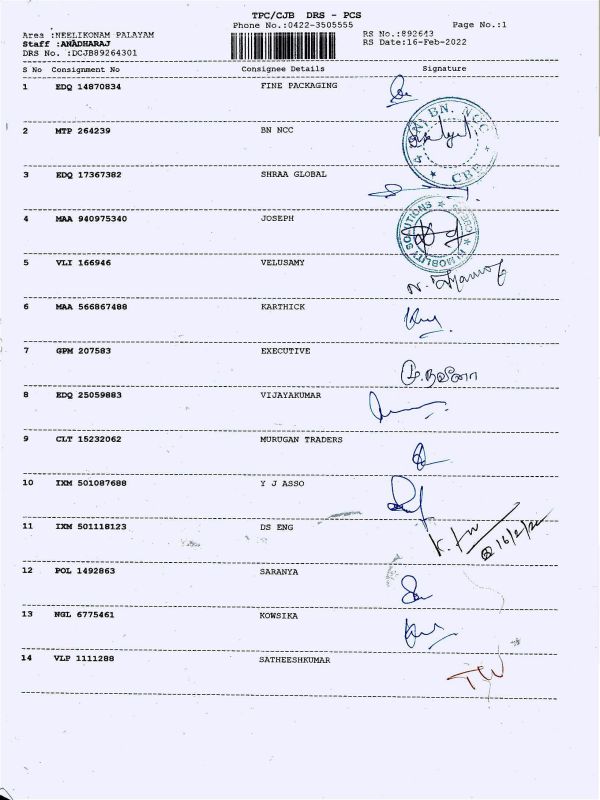 TPC/CJB DRS - PCS
Phone No.:0422-3505555 Page No.:1
Area :NEELIKONAM PALAYAM RS No.:892643
Staff :ANADHARAJ RS Date:16-Feb-2022
DRS No. :DCJB89264301
S No Consignment No Consignee Details Signature
1 EDQ 14870834 FINE PACKAGING
2 MTP 264239 BN NCC
BN. NCC
CBE
3 EDQ 17367382 SHRAA GLOBAL
4 MAA 940975340 JOSEPH
MOBILITY SOLUTIONS
5 VLI 166946 VELUSAMY
6 MAA 566867488 KARTHICK
7 GPM 207583 EXECUTIVE
8 EDQ 25059883 VIJAYAKUMAR
9 CLT 15232062 MURUGAN TRADERS
10 IXM 501087688 Y J ASSO
11 IXM 501118123 DS ENG
16/2/22
12 POL 1492863 SARANYA
13 NGL 6775461 KOWSIKA
14 VLP 1111288 SATHEESHKUMAR